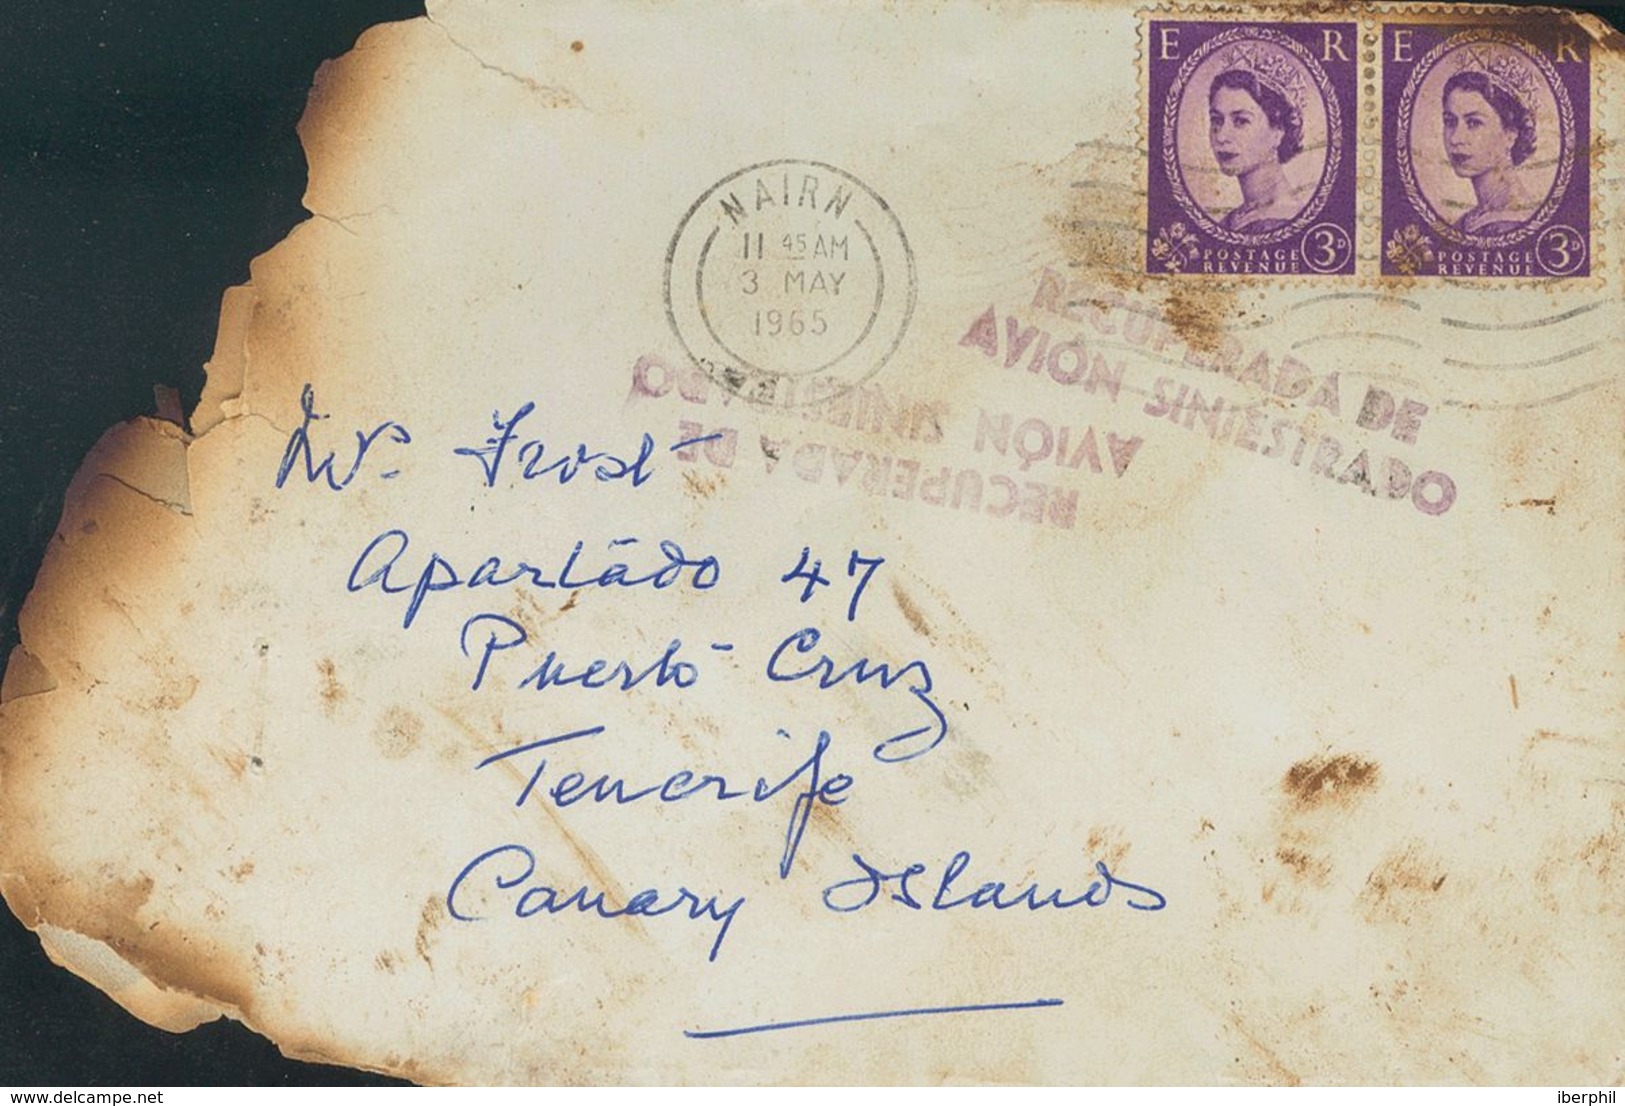 E R
POSTAGE
REVENUE
3D
E R
POSTAGE
REVENUE
3D
NAIRN
11 45 AM
3 MAY
1965
RECUPERADA DE
AVIÓN SINIESTRADO
RECUPERADA DE
AVIÓN SINIESTRADO
Mr. Frost
Apartādo 47
Puerto Cruz
Tenerife
Canary Islands
www.delcampe.net
iberphil